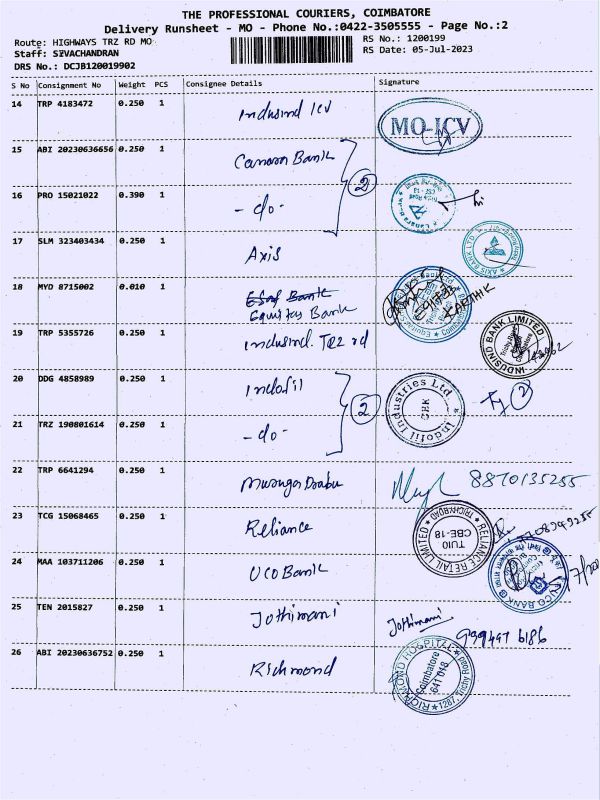 THE PROFESSIONAL COURIERS, COIMBATORE
Delivery Runsheet - MO - Phone No.:0422-3505555 - Page No.:2
Route: HIGHWAYS TRZ RD MO
RS No.: 1200199
Staff: SIVACHANDRAN
RS Date: 05-Jul-2023
DRS No.: DCJB120019902
S No Consignment No Weight PCS Consignee Details Signature
14 TRP 4183472 0.250 1 Indusind ICV
MO-ICV
15 ABI 20230636656 0.250 1 Canara Bank
2
16 PRO 15021022 0.390 1 -do-
17 SLM 323403434 0.250 1 Axis
AXIS BANK LTD
18 MYD 8715002 0.010 1 Esaf Bank
Equitas Bank
KARTHIK
19 TRP 5355726 0.250 1 Indusind. TRZ rd
INDUSIND BANK LIMITED
20 DDG 4858989 0.250 1 Indofil
2
Indofil Industries Ltd
CBE
2
21 TRZ 190801614 0.250 1 -do-
22 TRP 6641294 0.250 1
8870135255
23 TCG 15068465 0.250 1 Reliance
RELIANCE RETAIL LIMITED
TRICHY ROAD
TU10
CBE-18
24 MAA 103711206 0.250 1 UCO Bank
UCO BANK
25 TEN 2015827 0.250 1 Jothimani
Jothimani
999497 6186
26 ABI 20230636752 0.250 1 Richmond
RICHMOND HOSPITAL
Coimbatore
641 018